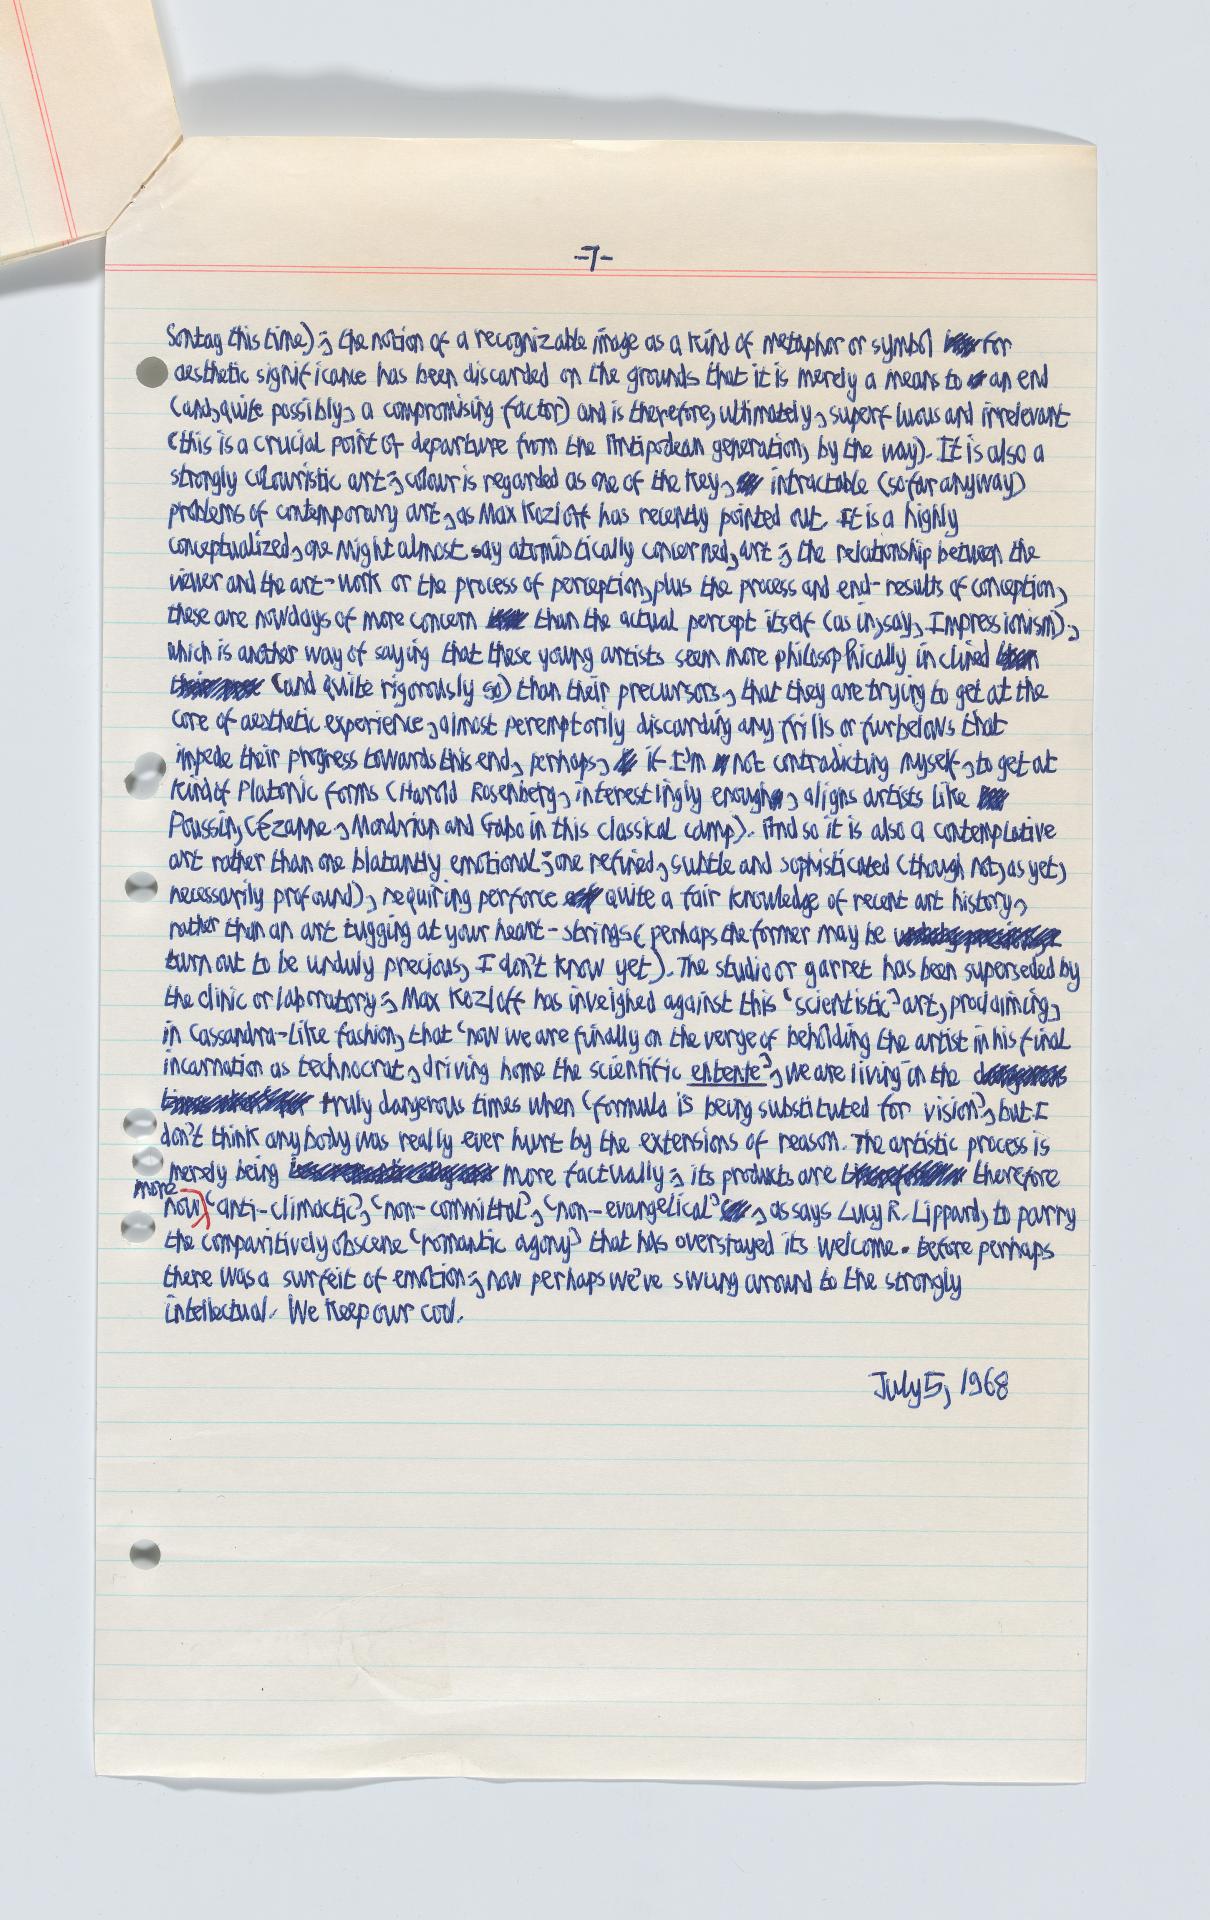 -7-
Sontag this time); the notion of a recognizable image as a kind of metaphor or symbol for
aesthetic significance has been discarded on the grounds that it is merely a means to an end
(and, quite possibly, a compromising factor) and is therefore, ultimately, superfluous and irrelevant
(this is a crucial point of departure from the Antipodean generation, by the way). It is also a
strongly colouristic art; colour is regarded as one of the key, intractable (so far anyway)
problems of contemporary art, as Max Kozloff has recently pointed out. It is a highly
conceptualized, one might almost say atomistically concerned, art; the relationship between the
viewer and the art-work or the process of perception, plus the process and end-results of conception,
these are nowdays of more concern than the actual percept itself (as in, say, Impressionism);
which is another way of saying that these young artists seem more philosophically inclined
(and quite rigorously so) than their precursors, that they are trying to get at the
core of aesthetic experience, almost peremptorily discarding any frills or furbelows that
impede their progress towards this end, perhaps, if I'm not contradicting myself, to get at
kind of Platonic forms (Harold Rosenberg, interestingly enough, aligns artists like
Poussin, Cézanne, Mondrian and Gabo in this classical camp). And so it is also a contemplative
art rather than one blatantly emotional; one refined, subtle and sophisticated (though not, as yet,
necessarily profound), requiring perforce quite a fair knowledge of recent art history,
rather than an art tugging at your heart-strings (perhaps the former may be
turn out to be unduly precious, I don't know yet). The studio or garret has been superseded by
the clinic or laboratory; Max Kozloff has inveighed against this 'scientistic' art, proclaiming,
in Cassandra-like fashion, that 'now we are finally on the verge of beholding the artist in his final
incarnation as technocrat, driving home the scientific entente', we are living in the
truly dangerous times when 'formula is being substituted for vision', but I
don't think anybody was really ever hurt by the extensions of reason. The artistic process is
merely being more factually; its products are therefore
more
now 'anti-climactic', 'non-committal', 'non-evangelical', as says Lucy R. Lippard, to parry
the comparitively obscene 'romantic agony' that has overstayed its welcome. Before perhaps
there was a surfeit of emotion; now perhaps we've swung around to the strongly
intellectual. We keep our cool.
July 5, 1968